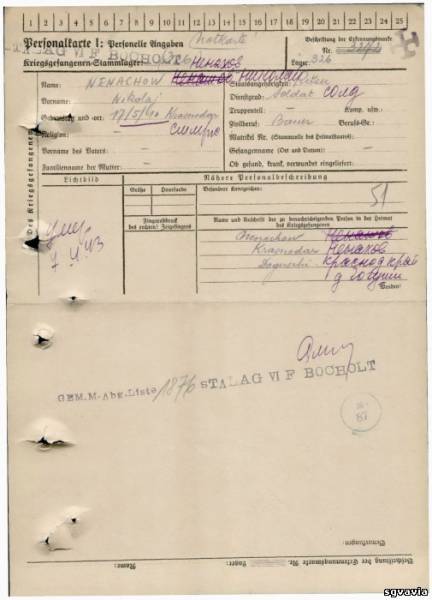 1 2 3 4 5 6 7 8 9 10 11 12 13 14 15 16 17 18 19 20 21 22 23 24 25
Personalkarte I: Personelle Angaben
Notkarte
Beschriftung der Erkennungsmarke
Nr.
STALAG VI F BOCHOLT
Kriegsgefangenen-Stammlager:
Ненахов
Lager: 326
Name: NENACHOW
Николай
Staatsangehörigkeit:
Vorname: Nikolaj
Dienstgrad: Soldat солд
Geburtstag und -ort: Krasnodar
Truppenteil: Komp. usw.:
Religion:
Zivilberuf: Bauer Berufs-Gr.:
Matrikel Nr. (Stammrolle des Heimatstaates):
Vorname des Vaters:
Gefangennahme (Ort und Datum):
Familienname der Mutter:
Ob gesund, krank, verwundet eingeliefert:
Des Kriegsgefangenen
Lichtbild
Nähere Personalbeschreibung
Größe
Haarfarbe
Besondere Kennzeichen:
51
Fingerabdruck
des rechten! Zeigefingers
Name und Anschrift der zu benachrichtigenden Person in der Heimat
des Kriegsgefangenen
Nenachow
Ненахов
Krasnodar
Ненахов
Краснод край
умер
GEM.M.-Abg.Liste 1876 STALAG VI F BOCHOLT
87
Bemerkungen:
Beschriftung der Erkennungsmarke Nr.
Lager:
sgvavia